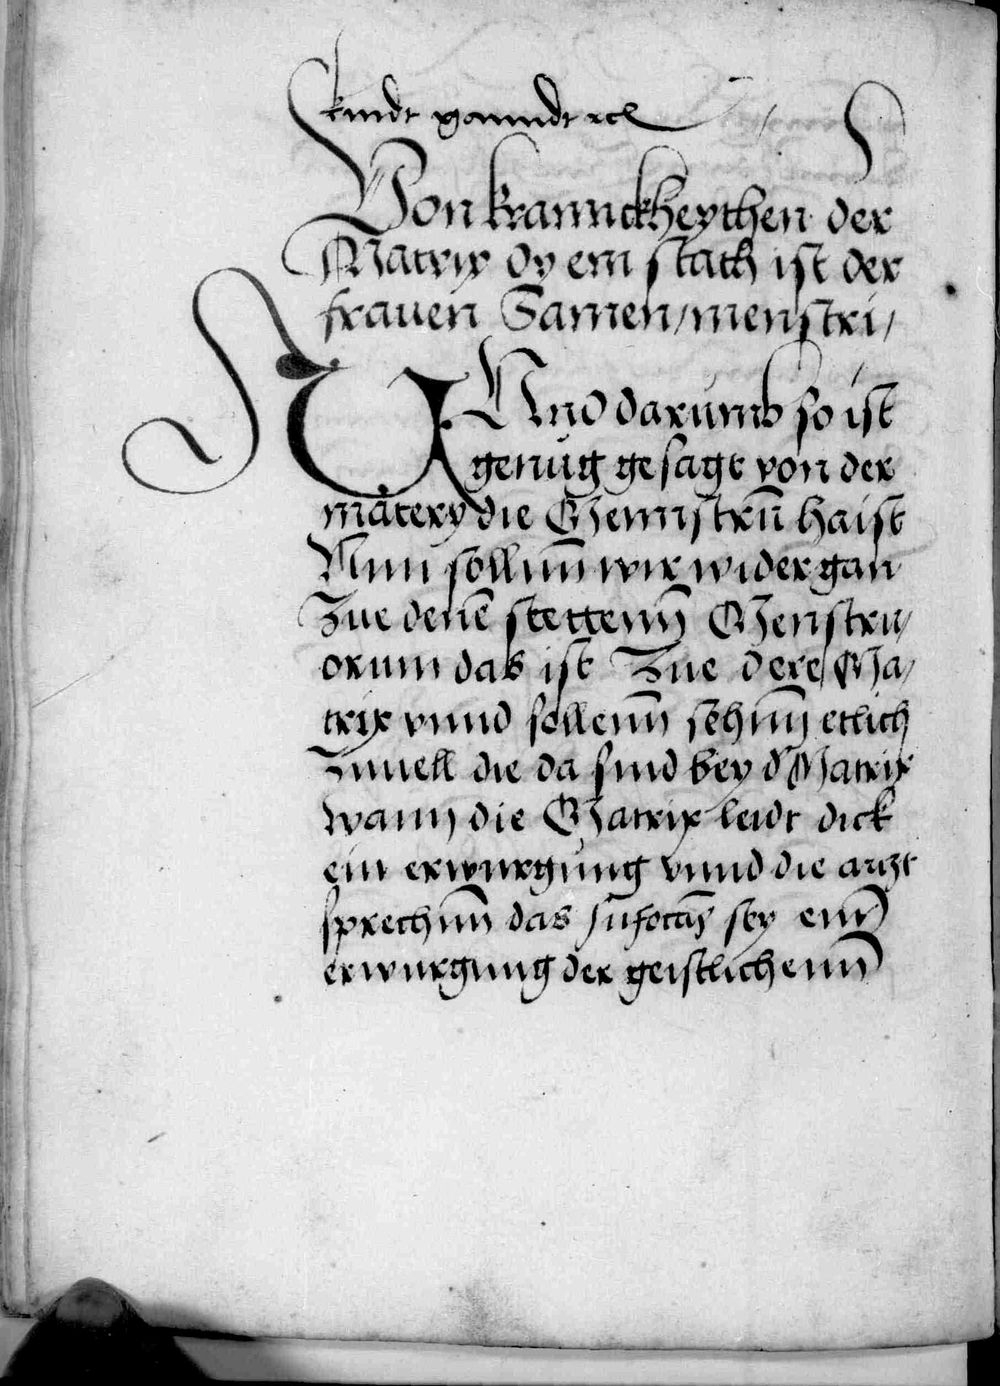 kindt gaunndt ꝛcꝛ
Von kranncklheythen der
Matrix dy ein stath ist der
frauen Samen/menstri/
VNnd darumb so ist
genug gesagt von der
matery die Menstrũ haist
Nun sollnn̄ wir wider gan
Zue denē stettenn̄ Menstru/
orum das ist Zue dere Ma/
trix vnnd sollenn̄ sehnn̄ etlich
Zuuell die da sind bey d' Matrix
wann die Matrix leidt dick
ein erwurgung vnnd die arzt
sprechnn̄ das sufocatz̄ sey ein̄
erwurgung der geistlichenn̄